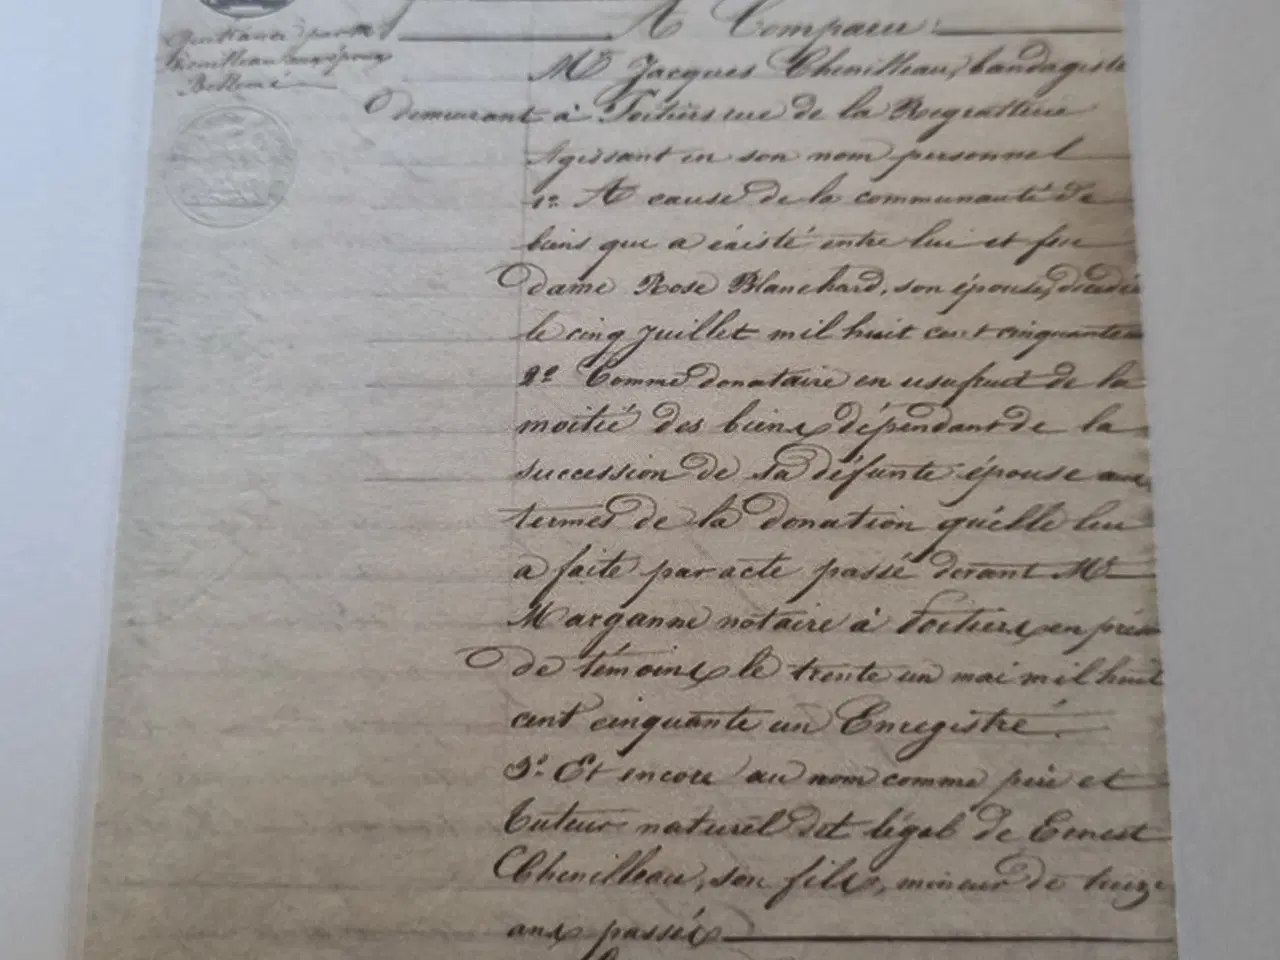 Quittance par Mr
Chenilleau aux époux
Bellomé
A Comparu :
Mr Jacques Chenilleau, bandagiste
demeurant à Poitiers rue de la Regratterie
Agissant en son nom personnel
1º. A cause de la communauté de
biens que a éxisté entre lui et feu
dame Rose Blanchard, son épouse, décédée
le cinq Juillet mil huit cent cinquante un
2º. Comme donataire en usufruit de la
moitié des biens dépendant de la
succession de sa défunte épouse aux
termes de la donation qu'elle lui
a faite par acte passé devant Me
Marganne notaire à Poitiers, en prés
de témoins le trente un mai mil huit
cent cinquante un Enregistré.
3º. Et encore au nom comme père et
tuteur naturel et légal de Ernest
Chenilleau, son fils, mineur de treize
ans passés